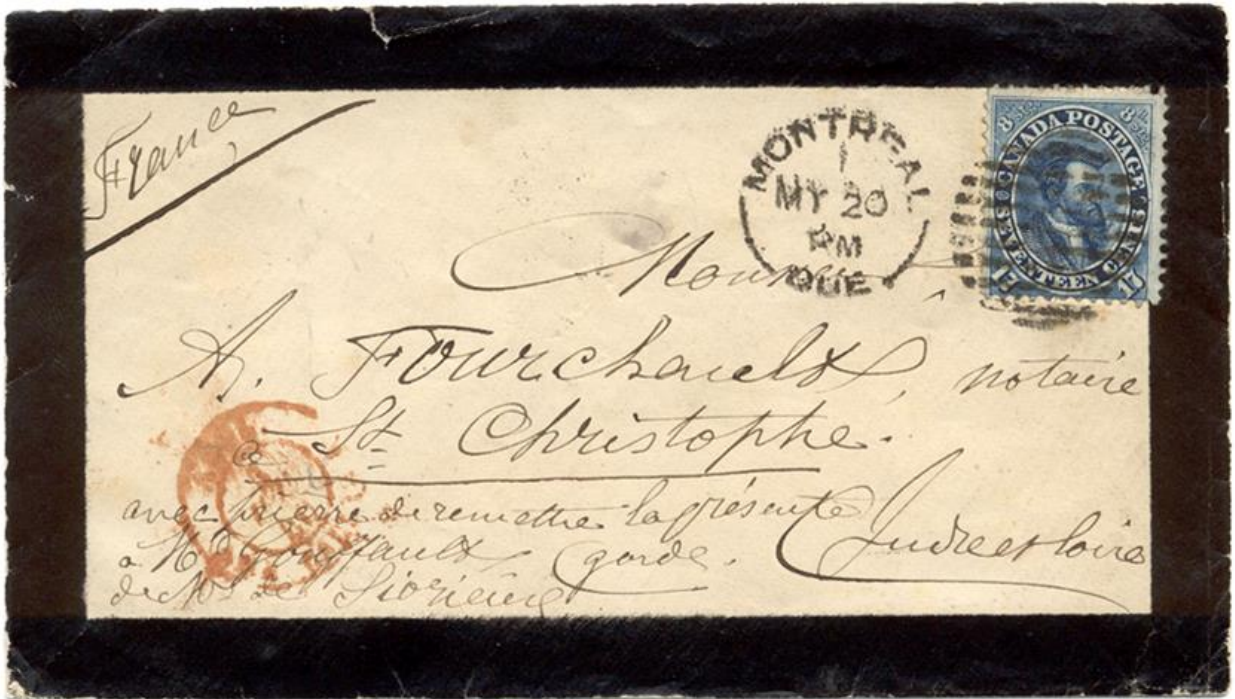 France
MONTREAL
1
MY 20
PM
QUE
8 CANADA POSTAGE 8
SEVENTEEN CENTS
17
Monsieur
A. Fourchault, notaire
à St Christophe.
Indre et Loire
avec prière de remettre la présente
à Mr garde.
de Mr de